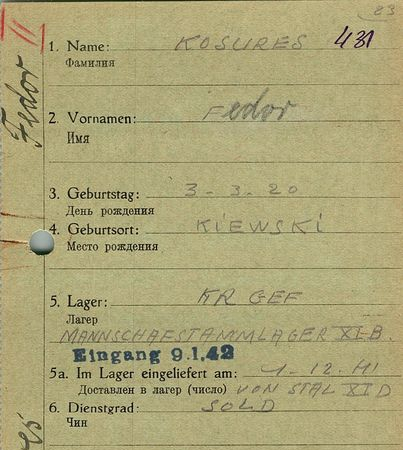 23
II
Fedor
1. Name: KOSURES 431
Фамилия
2. Vornamen: Fedor
Имя
3. Geburtstag: 3-3.20
День рождения
4. Geburtsort: KIEWSKI
Место рождения
5. Lager: KR GEF
Лагер
MANNSCHAFSTAMMLAGER XI-B.
Eingang 9.1.42
5a. Im Lager eingeliefert am: 4-12.41
Доставлен в лагер (число) VON STAL XI D
6. Dienstgrad: SOLD
Чин